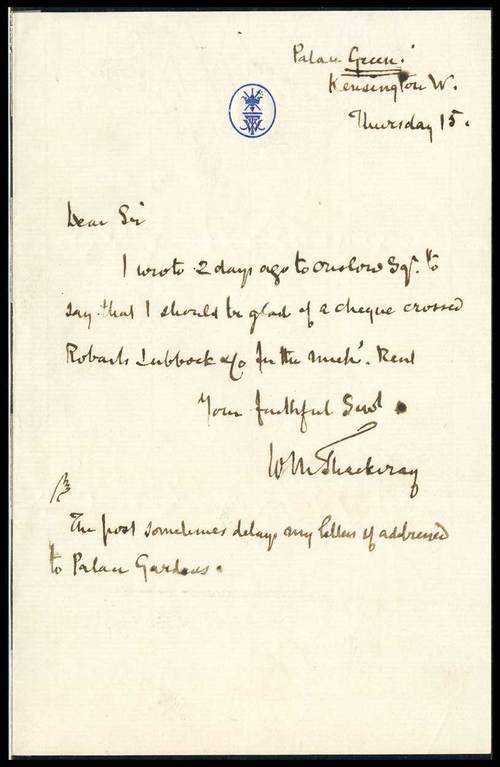 Palace Green.
Kensington W.
Thursday 15.
Dear Sir
I wrote 2 days ago to Onslow Sqr. to
say that I should be glad of a cheque crossed
Robarts Lubbock & Co for the Rent
Your faithful Servt
WMThackeray
The post sometimes delays my letters if addressed
to Palace Gardens.